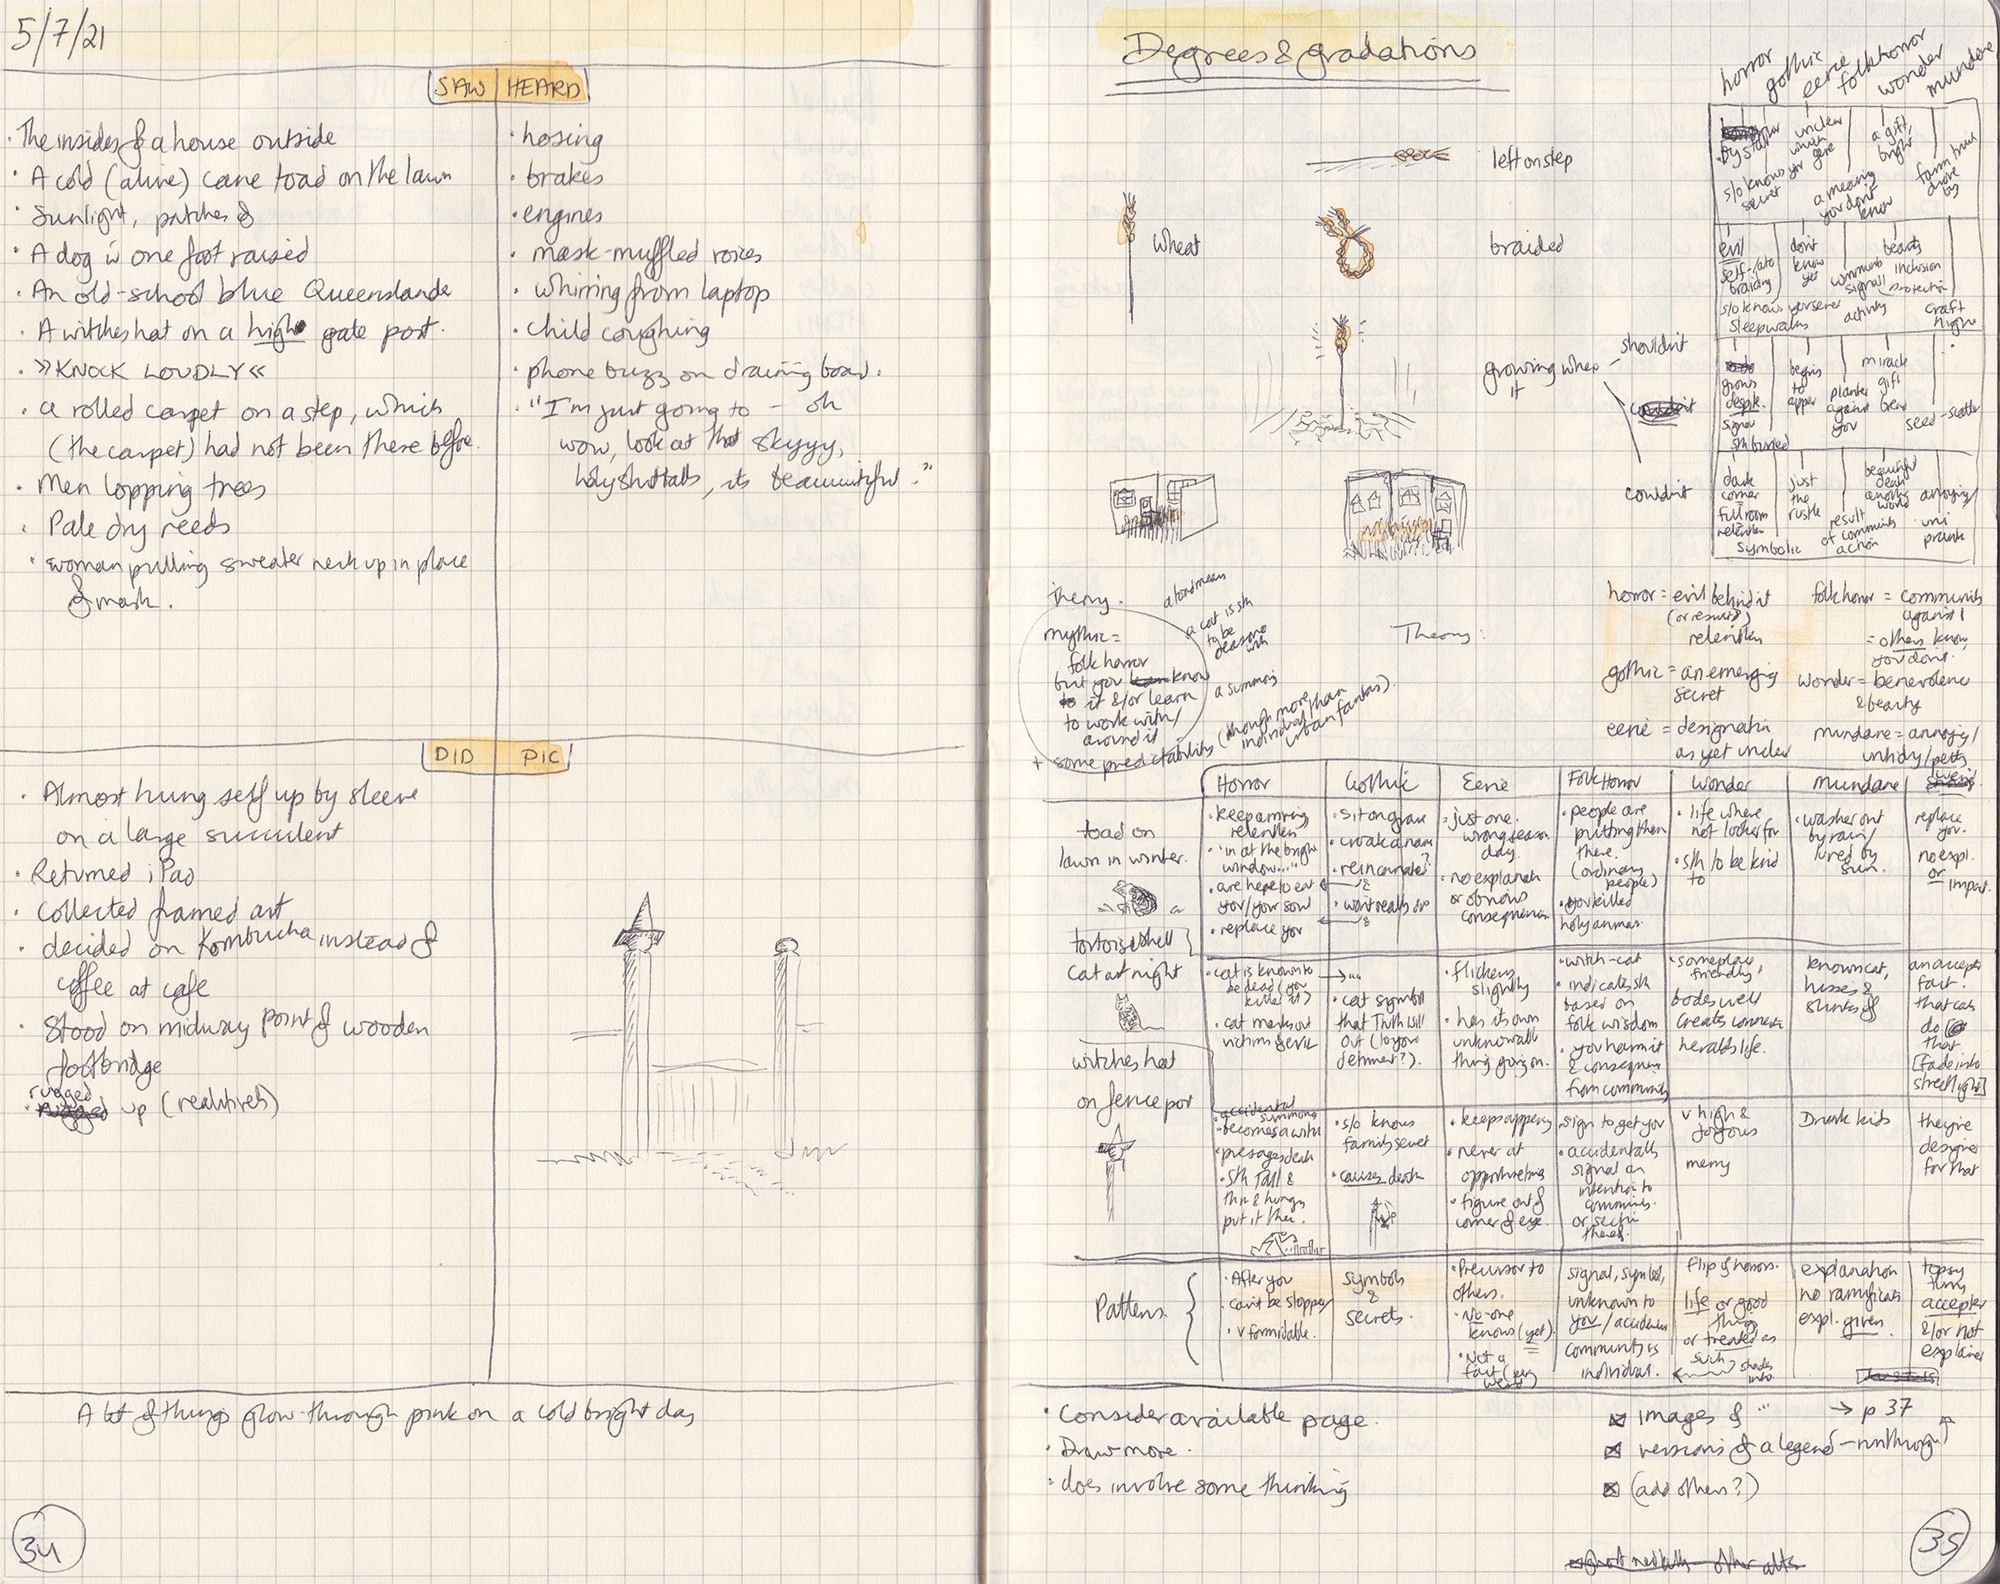 5/7/21
SAW HEARD
· The insides of a house outside
· A cold (alive) cane toad on the lawn
· Sunlight, patches of
· A dog w one foot raised
· An old-school blue Queenslander
· A witches hat on a high gate post.
· »KNOCK LOUDLY«
· a rolled carpet on a step, which
(the carpet) had not been there before.
· Men lopping trees
· Pale dry reeds
· woman pulling sweater neck up in place
of mask.
· hosing
· brakes
· engines
· mask-muffled voices
· whirring from laptop
· child coughing
· phone buzz on draining board.
· "I'm just going to – oh
wow, look at that skyyy,
holy shitballs, its beauuutiful."
DID PIC
· Almost hung self up by sleeve
on a large succulent
· Returned iPad
· Collected framed art
· decided on Kombucha instead of
coffee at cafe
· Stood on midway point of wooden
footbridge
rugged
· up (realtives)
A lot of things glow-through pink on a cold bright day
34
Degrees & gradations
left on step
wheat
braided
growing where
it
shouldn't
couldn't
couldn't
horror
gothic
eerie
folk horror
wonder
mundane
s/o knows
secret
unclear
which
you are
a meaning
you don't
know
a gift,
bright
farm truck
drove
by
evil
self-/auto
braiding
s/o knows
sleepwalks
don't
know
yet
community
signal/
activity
beauty
inclusion
(protection)
craft
night
grows
despite
signal
sth buried
begins
to
appear
planted
against
you
miracle
gift
here
seed-scatter
dark
corner
full room
relentless
symbolic
just
the
rustle
result
of community
action
beautiful
death
another
world
annoying/
uni
prank
Theory.
mythic =
folk horror
but you know
it &/or learn
to work with/
around it
+ some predictability
a cat is sth
to be
reasoned
with
a summons
(though more than
individual
urban fantasy).
Theory:
horror = evil behind it
(or result)
relentless
gothic = an emerging
secret
eerie = designation
as yet unclear
folk horror = community
against 1
= others know,
you don't.
wonder = benevolence
& beauty
mundane = annoying/
untidy/petty
Horror Gothic Eerie Folk Horror Wonder Mundane Weird
toad on
lawn in winter.
· keep arriving
relentless
· "in at the bright
window..."
· are here to eat
you/your soul
· replace you
· sit on grave
· croak a name
· reincarnated?
· won't really die
· just one.
wrong season
day.
· no explanation
or obvious
consequences
· people are
putting them
there.
(ordinary
people)
· you killed
holy animas.
· life where
not looked for
· sth to be kind
to
· washed out
by rain/
lured by
sun.
replace
you.
no expl.
or impact.
tortoiseshell
cat at night
· cat is known to
be dead (you
killed it)
· cat marks out
victims & evil
· cat symbol
that Truth will
out (to your
detriment?).
· flickers
slightly
· has its own
unknowable
thing going on.
· witch-cat
· indicates sth
based on
folk wisdom
· you harm it
& consequences
from community
· someplace
friendly,
bodes well
creates connection
heralds life.
known cat,
hisses &
slinks off
an accepted
fact.
that cats
do
that
[fade into
streetlight]
witches hat
on fence post
· accidental
summons
· becomes a witch
· presages death
· sth tall &
thin & hungry
put it there.
· s/o knows
family secret
· causes death
· keeps appearing
· never at
opportune time
· figure out of
corner of eye.
sign to get you
· accidentally
signal an
intention to
community
or sth in
there.
v high &
joyous
merry
Drunk kids
they're
designed
for that
Patterns.
· After you
· can't be stopped
· v formidable.
symbols
&
secrets.
· Precursor to
others.
· No-one
knows (yet)
· Not a
fact (eg
weird)
signal, symbol,
unknown to
you/accidental
community vs
individual.
flip of horror.
life or good
things
or treated as
such
shades
into
explanation
no ramifications
expl. given
topsy
turvy
accepted
&/or not
explained
· Consider available page.
· Draw more.
· does involve some thinking
images of "" → p 37
versions of a legend – run through
(add others?)
35